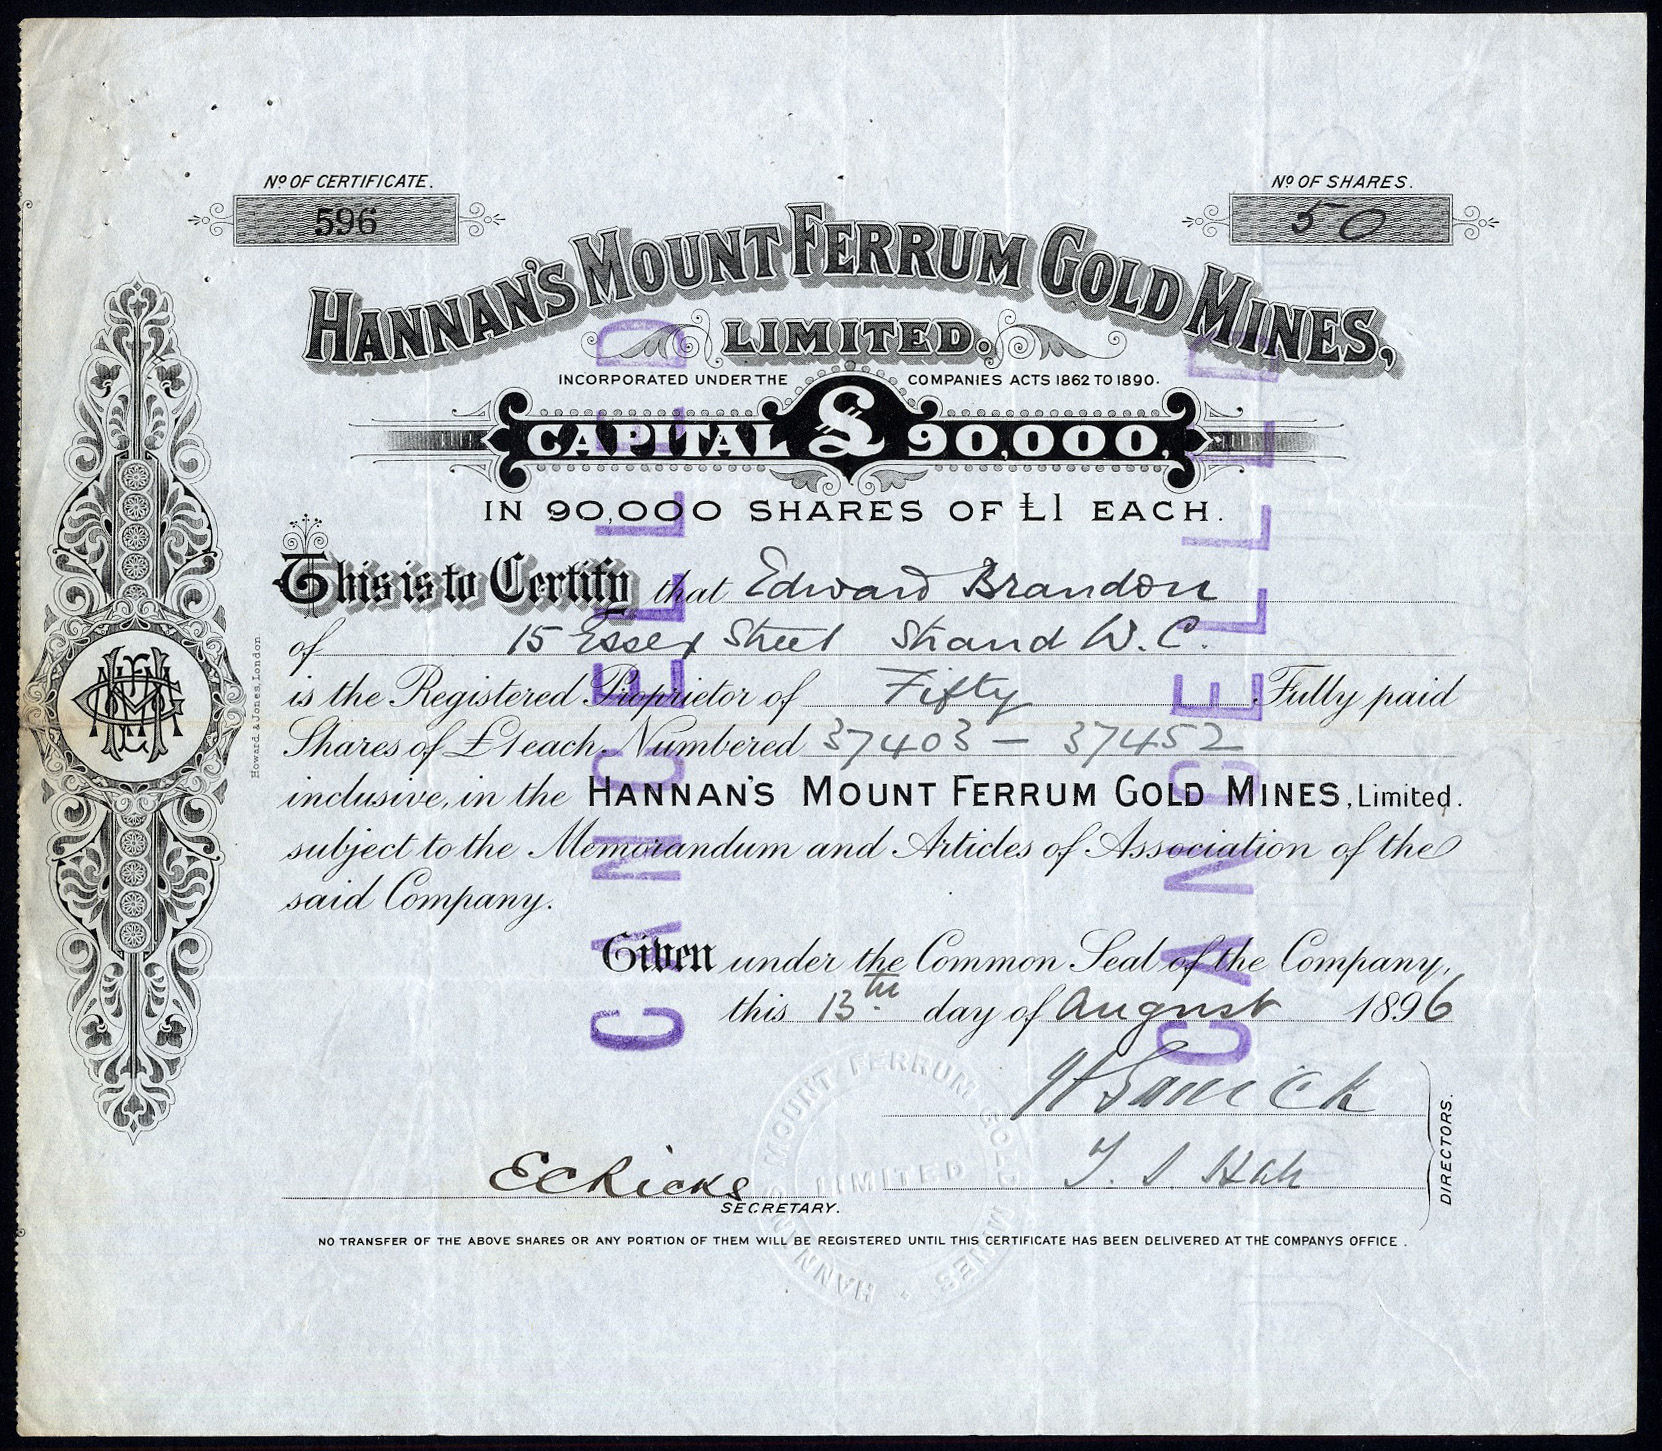 Nº OF CERTIFICATE.
596
Nº OF SHARES.
50
HANNAN'S MOUNT FERRUM GOLD MINES,
LIMITED.
INCORPORATED UNDER THE COMPANIES ACTS 1862 TO 1890.
CAPITAL £ 90,000,
IN 90,000 SHARES OF £1 EACH.
This is to Certify that Edward Brandon
of 15 Essex Street Strand W.C.
is the Registered Proprietor of Fifty Fully paid
Shares of £1 each Numbered 37403 — 37452
inclusive, in the HANNAN'S MOUNT FERRUM GOLD MINES, Limited.
subject to the Memorandum and Articles of Association of the
said Company.
Given under the Common Seal of the Company,
this 13th day of August 1896
DIRECTORS.
ECRicks
SECRETARY.
NO TRANSFER OF THE ABOVE SHARES OR ANY PORTION OF THEM WILL BE REGISTERED UNTIL THIS CERTIFICATE HAS BEEN DELIVERED AT THE COMPANYS OFFICE.
Howard & Jones, London
CANCELLED
CANCELLED
HANNANS MOUNT FERRUM GOLD MINES
LIMITED